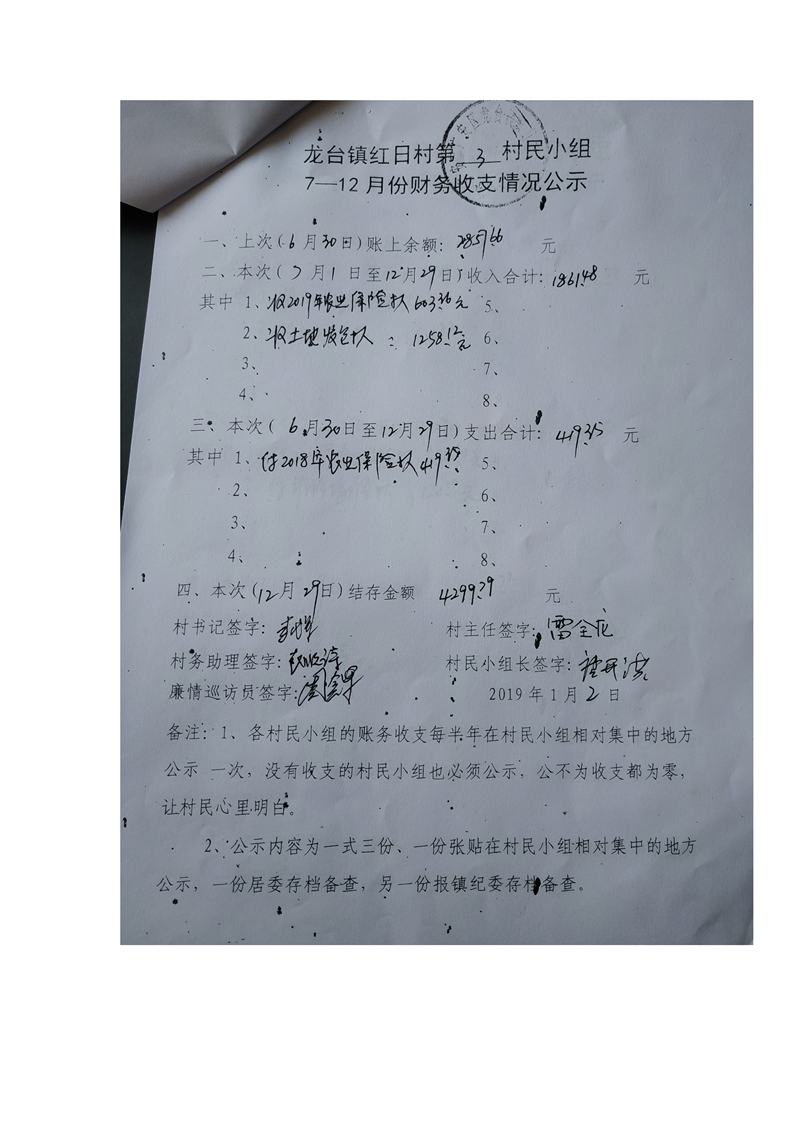 龙台镇红日村第 3 村民小组
7—12月份财务收支情况公示
一、上次(6月30日)账上余额: 2857.66 元
二、本次(7月1日至12月29日)收入合计: 1861.48 元
其中 1、收2019年农业保险款 603.36元 5、
2、收土地发包款: 1258.12元 6、
3、 7、
4、 8、
三、本次(6月30日至12月29日)支出合计: 419.35 元
其中 1、付2018年农业保险款 419.35 5、
2、 6、
3、 7、
4、 8、
四、本次(12月29日)结存金额 4299.79 元
村书记签字: 村主任签字: 雷全龙
村务助理签字: 村民小组长签字:
廉情巡访员签字: 2019年1月2日
备注: 1、各村民小组的账务收支每半年在村民小组相对集中的地方
公示 一次，没有收支的村民小组也必须公示，公不为收支都为零，
让村民心里明白。
2、公示内容为一式三份、一份张贴在村民小组相对集中的地方
公示，一份居委存档备查，另一份报镇纪委存档备查。